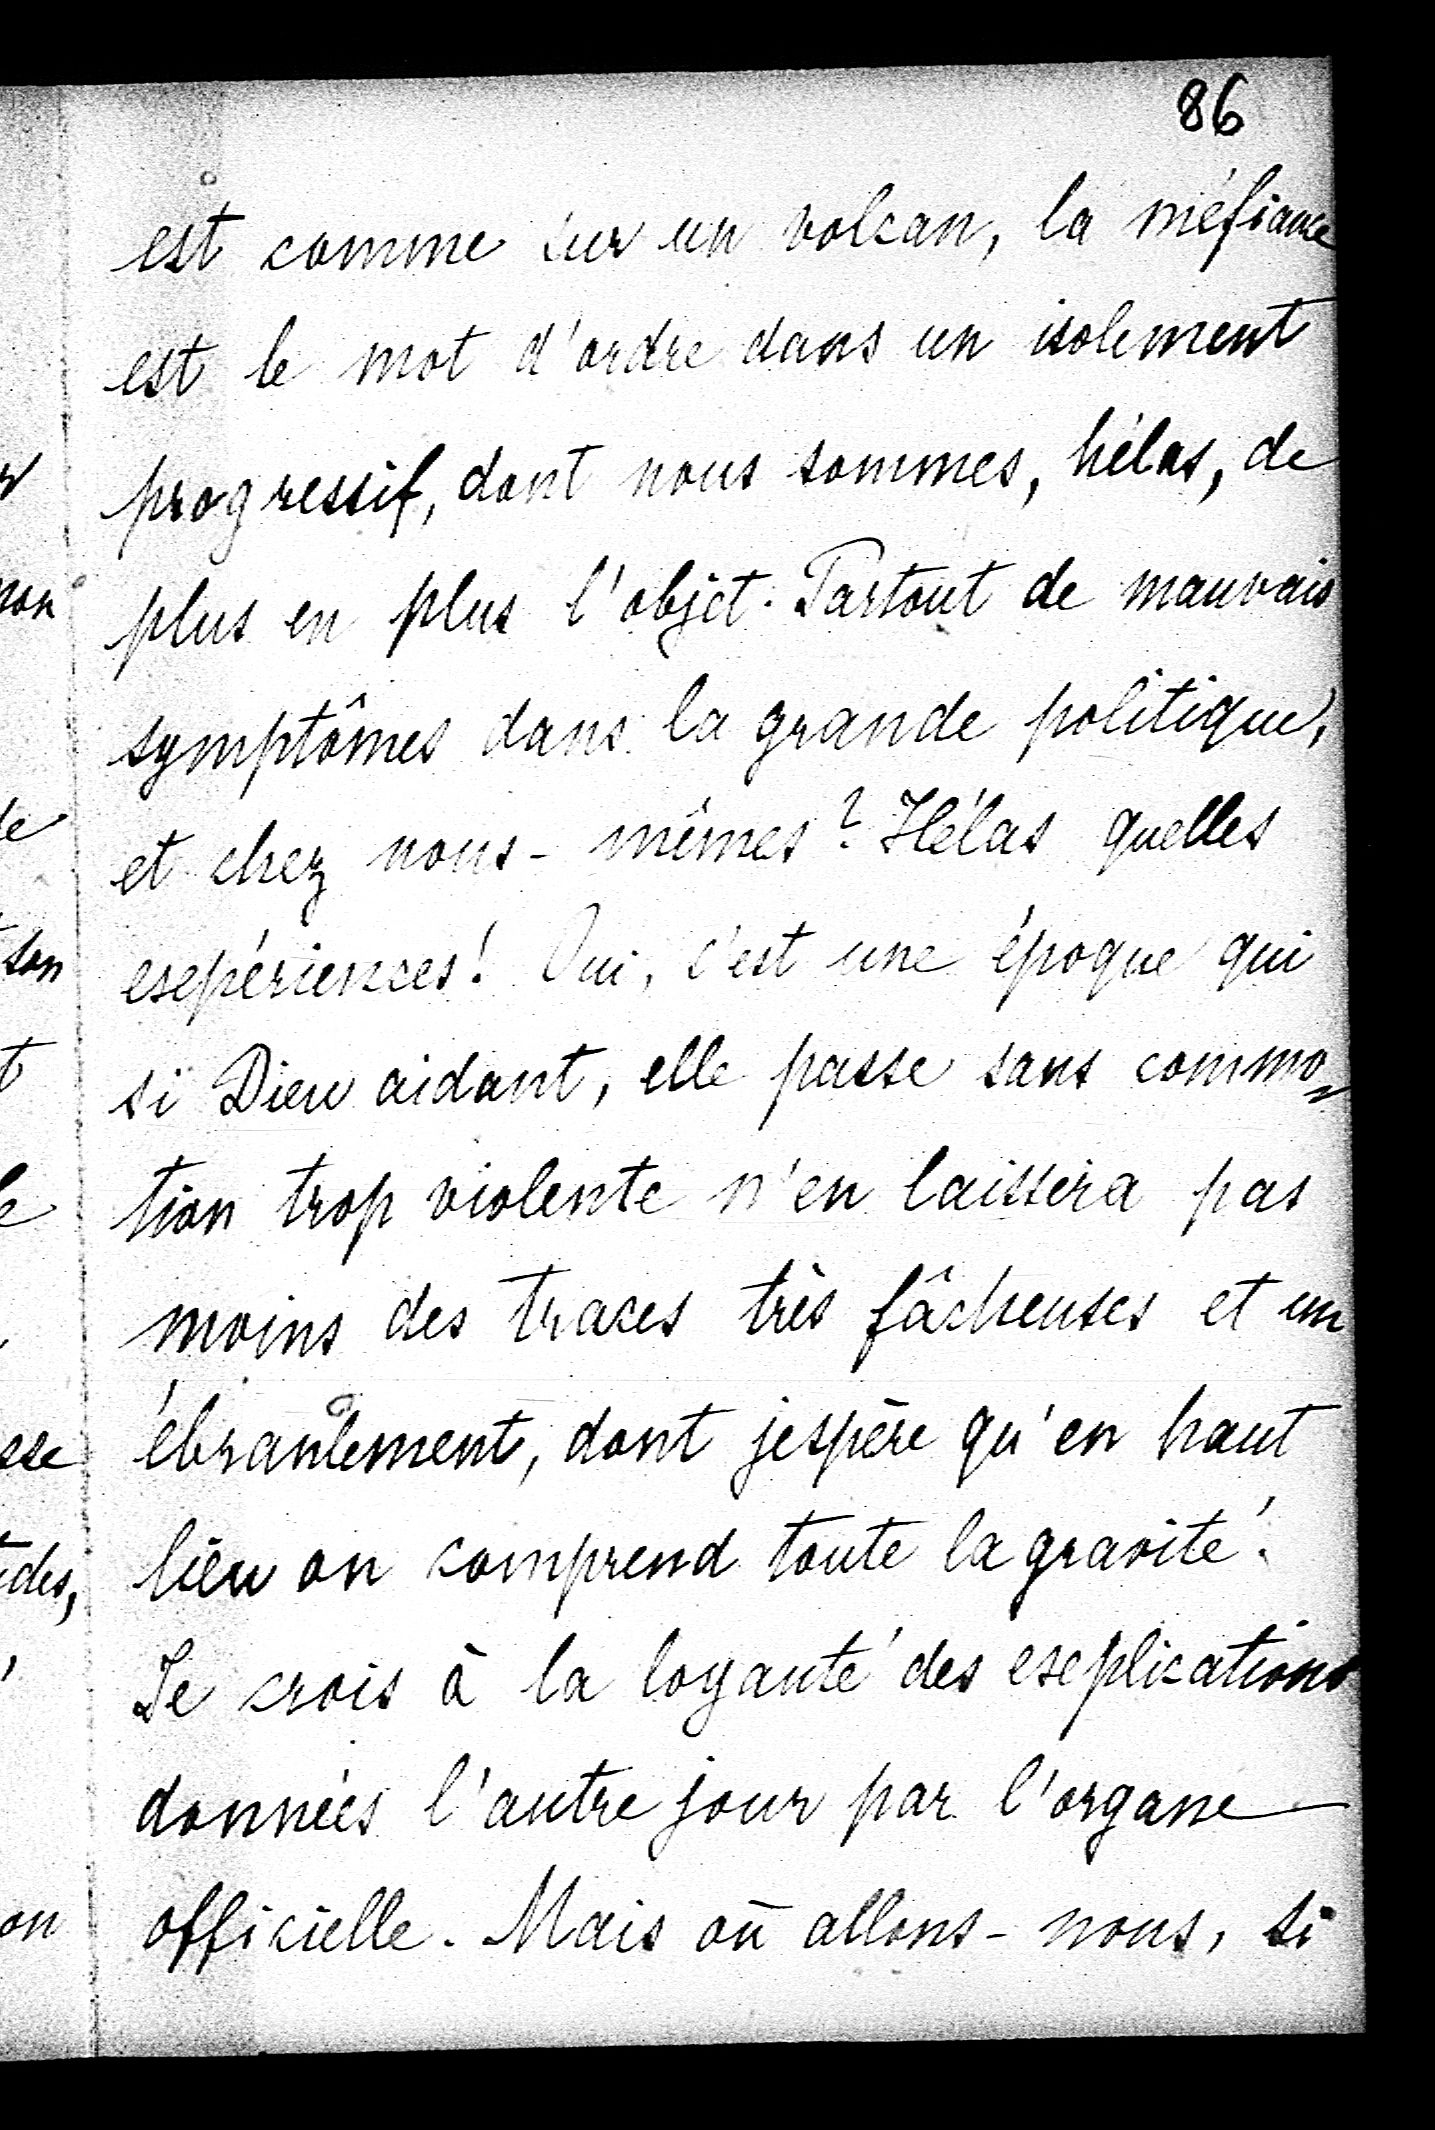 86
est comme sur un volcan, la méfiance
est le mot d'ordre dans un isolement
progressif, dont nous sommes, hélas, de
plus en plus l'objet. Partout de mauvais
symptômes dans la grande politique,
et chez nous-mêmes? Hélas quelles
expériences! Oui, c'est une époque qui
si Dieu aidant, elle passe sans commo=
tion trop violente n'en laissera pas
moins des traces très fâcheuses et un
ébranlement, dont jespère qu'en haut
lieu on comprend toute la gravité.
Je crois à la loyauté des explications
données l'autre jour par l'organe
officielle. Mais où allons-nous, si